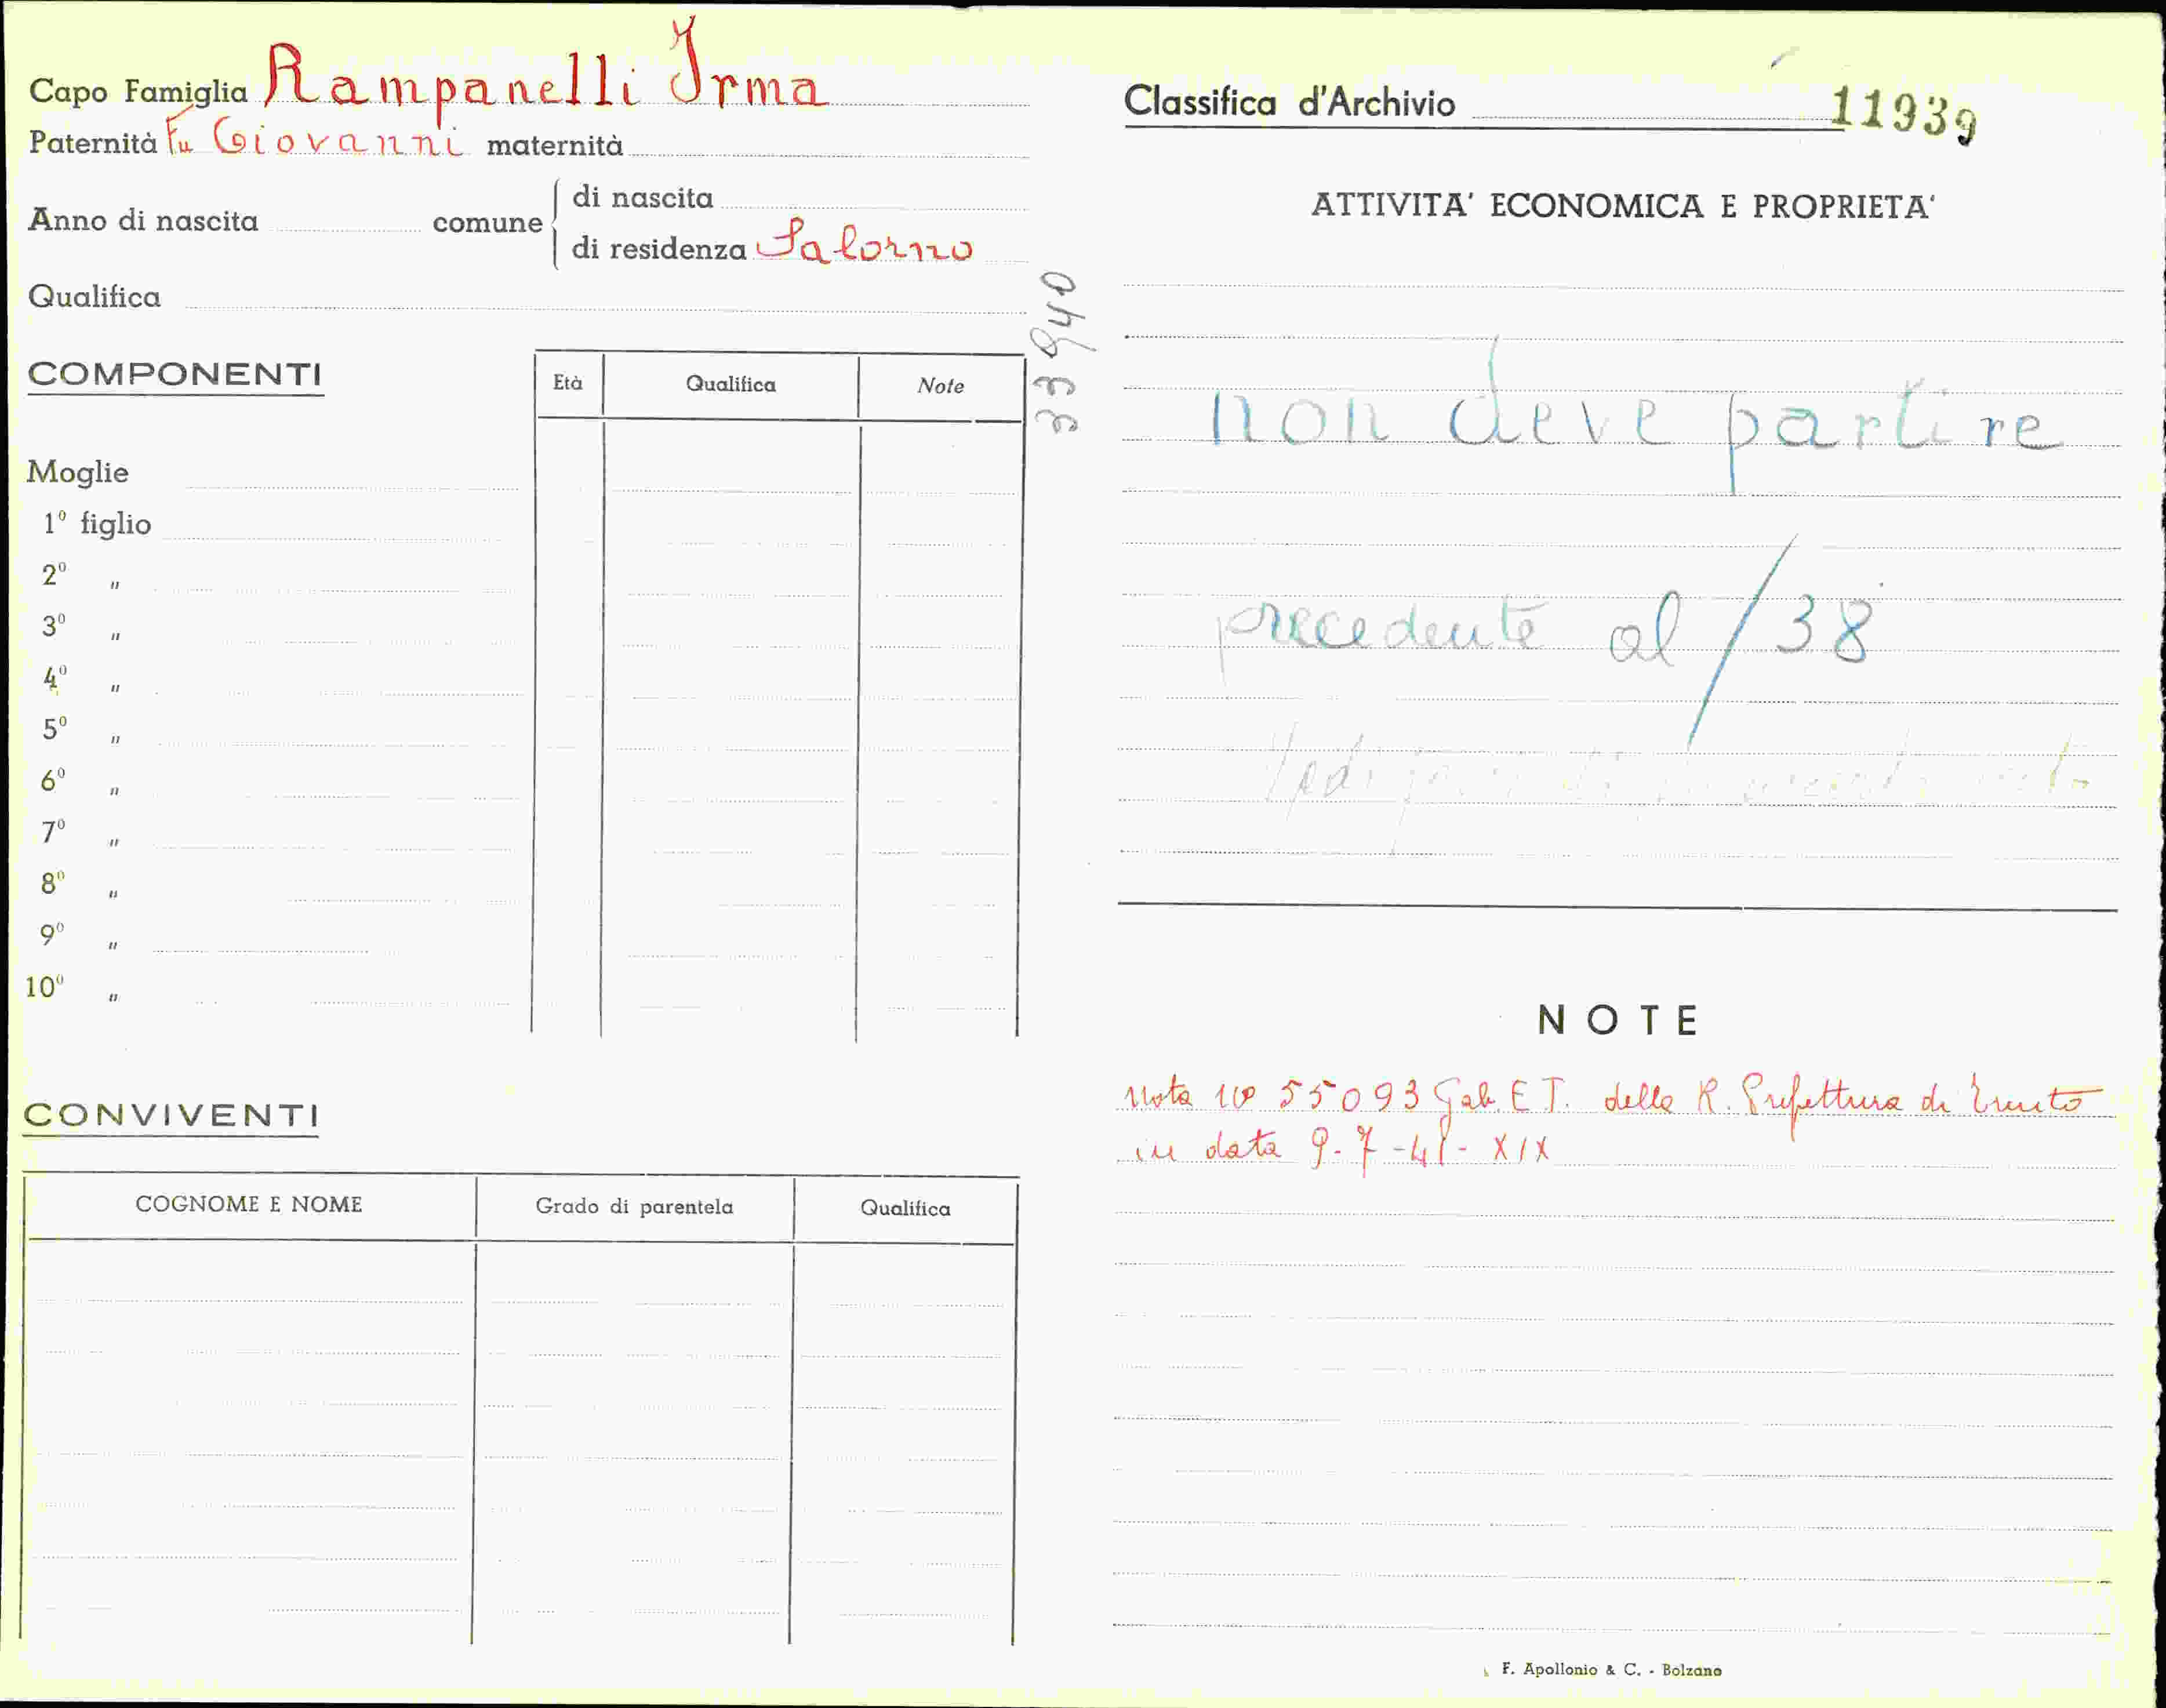 Capo Famiglia Rampanelli Irma
Paternità Fu Giovanni maternità
Anno di nascita comune di nascita
di residenza Salorno
Qualifica
33940
COMPONENTI
Età Qualifica Note
Moglie
1º figlio
2º "
3º "
4º "
5º "
6º "
7º "
8º "
9º "
10º "
CONVIVENTI
COGNOME E NOME Grado di parentela Qualifica
Classifica d'Archivio 11939
ATTIVITA' ECONOMICA E PROPRIETA'
non deve partire
precedente al /38
NOTE
Nota nº 55093 Gab. E T. della R. Prefettura di Trento
in data 9-7-41-XIX
F. Apollonio & C. - Bolzano